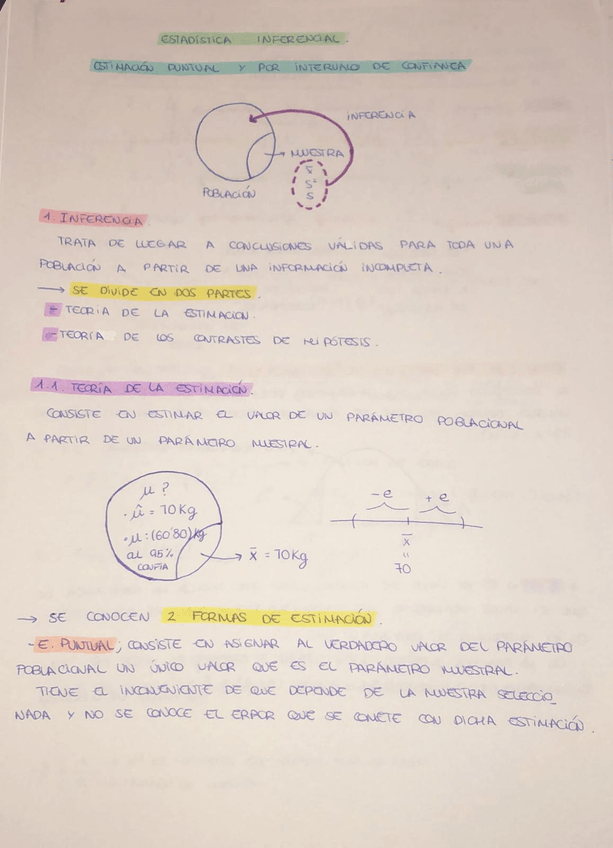 ESTADÍSTICA INFERENCIAL.
ESTIMACIÓN PUNTUAL Y POR INTERVALO DE CONFIANZA
INFERENCIA
MUESTRA
x̄
S²
S
POBLACIÓN
1. INFERENCIA.
TRATA DE LLEGAR A CONCLUSIONES VÁLIDAS PARA TODA UNA
POBLACIÓN A PARTIR DE UNA INFORMACIÓN INCOMPLETA.
→ SE DIVIDE EN DOS PARTES.
* TEORÍA DE LA ESTIMACIÓN.
- TEORÍA DE LOS CONTRASTES DE HIPÓTESIS.
1.1. TEORÍA DE LA ESTIMACIÓN.
CONSISTE EN ESTIMAR EL VALOR DE UN PARÁMETRO POBLACIONAL
A PARTIR DE UN PARÁMETRO MUESTRAL.
μ?
· μ̂ = 70Kg
· μ: (60'80)kg
al 95%
CONFIA
→ x̄ = 70Kg
-e +e
x̄
"
70
→ SE CONOCEN 2 FORMAS DE ESTIMACIÓN.
- E. PUNTUAL; CONSISTE EN ASIGNAR AL VERDADERO VALOR DEL PARÁMETRO
POBLACIONAL UN ÚNICO VALOR QUE ES EL PARÁMETRO MUESTRAL.
TIENE EL INCONVENIENTE DE QUE DEPENDE DE LA MUESTRA SELECCIO_
NADA Y NO SE CONOCE EL ERROR QUE SE COMETE CON DICHA ESTIMACIÓN.